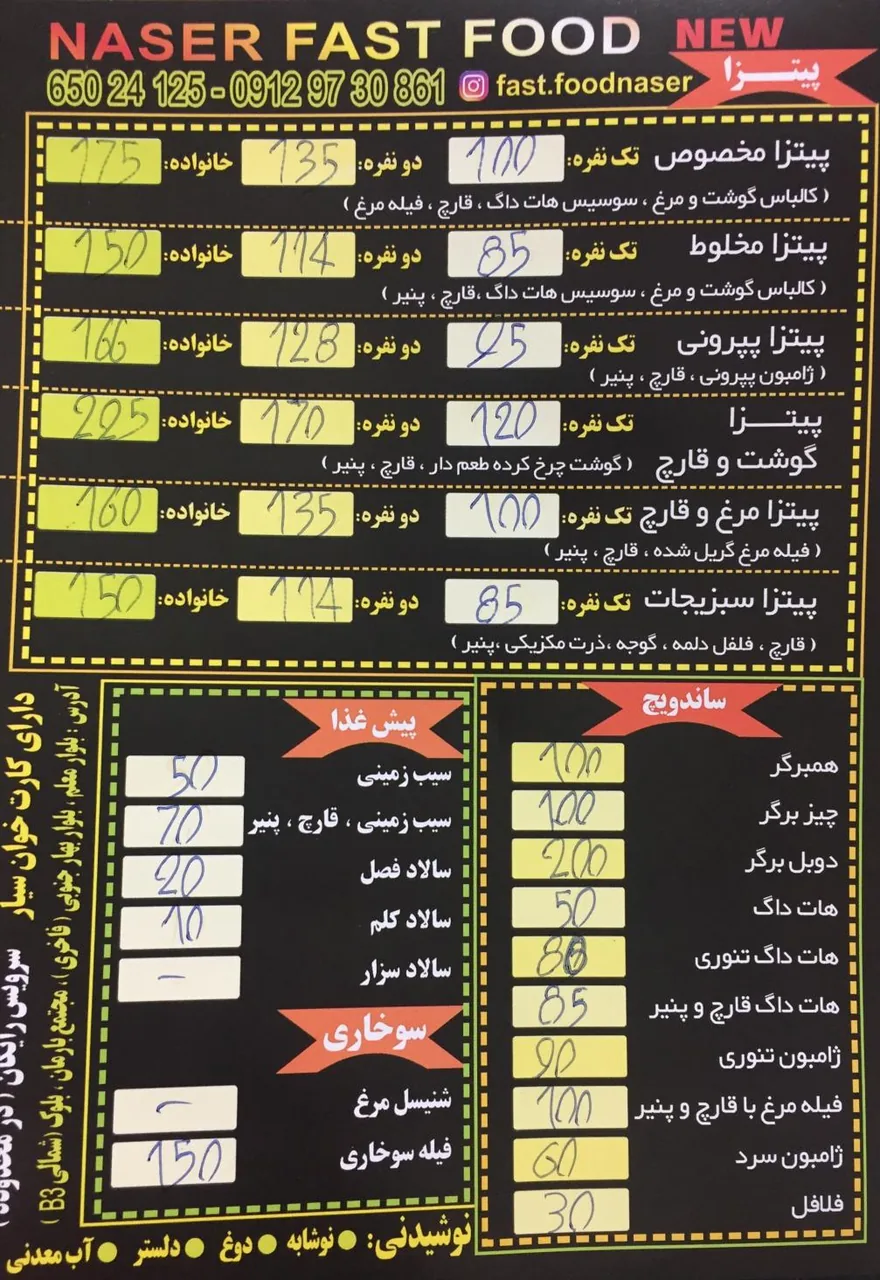 NASER FAST FOOD NEW
650 24 125 - 0912 97 30 861 fast.foodnaser
پیتـــزا
پیتزا مخصوص تک نفره: 100 دو نفره: 135 خانواده: 175
( کالباس گوشت و مرغ ، سوسیس هات داگ ، قارچ ، فیله مرغ )
پیتزا مخلوط تک نفره: 85 دو نفره: 114 خانواده: 150
( کالباس گوشت و مرغ ، سوسیس هات داگ ،قارچ ، پنیر )
پیتزا پپرونی تک نفره: 95 دو نفره: 128 خانواده: 166
( ژامبون پپرونی ، قارچ ، پنیر )
پیتـــــزا تک نفره: 120 دو نفره: 170 خانواده: 225
گوشت و قارچ ( گوشت چرخ کرده طعم دار ، قارچ ، پنیر )
پیتزا مرغ و قارچ تک نفره: 100 دو نفره: 135 خانواده: 160
( فیله مرغ گریل شده ، قارچ ، پنیر )
پیتزا سبزیجات تک نفره: 85 دو نفره: 114 خانواده: 150
( قارچ ، فلفل دلمه ، گوجه ،ذرت مکزیکی ،پنیر )
ساندویچ
همبرگر 100
چیز برگر 100
دوبل برگر 200
هات داگ 50
هات داگ تنوری 80
هات داگ قارچ و پنیر 85
ژامبون تنوری 90
فیله مرغ با قارچ و پنیر 100
ژامبون سرد 60
فلافل 30
پیش غذا
سیب زمینی 50
سیب زمینی ، قارچ ، پنیر 70
سالاد فصل 20
سالاد کلم 10
سالاد سزار -
سوخاری
شنیسل مرغ -
فیله سوخاری 150
نوشیدنی: نوشابه دوغ دلستر آب معدنی
آدرس : بلوار معلم ، بلوار بهار جنوبی ( فاخری ) ، مجتمع بارمان ، بلوک (شمالی B3 )
دارای کارت خوان سیار
سرویس رایگان ( در محدوده )